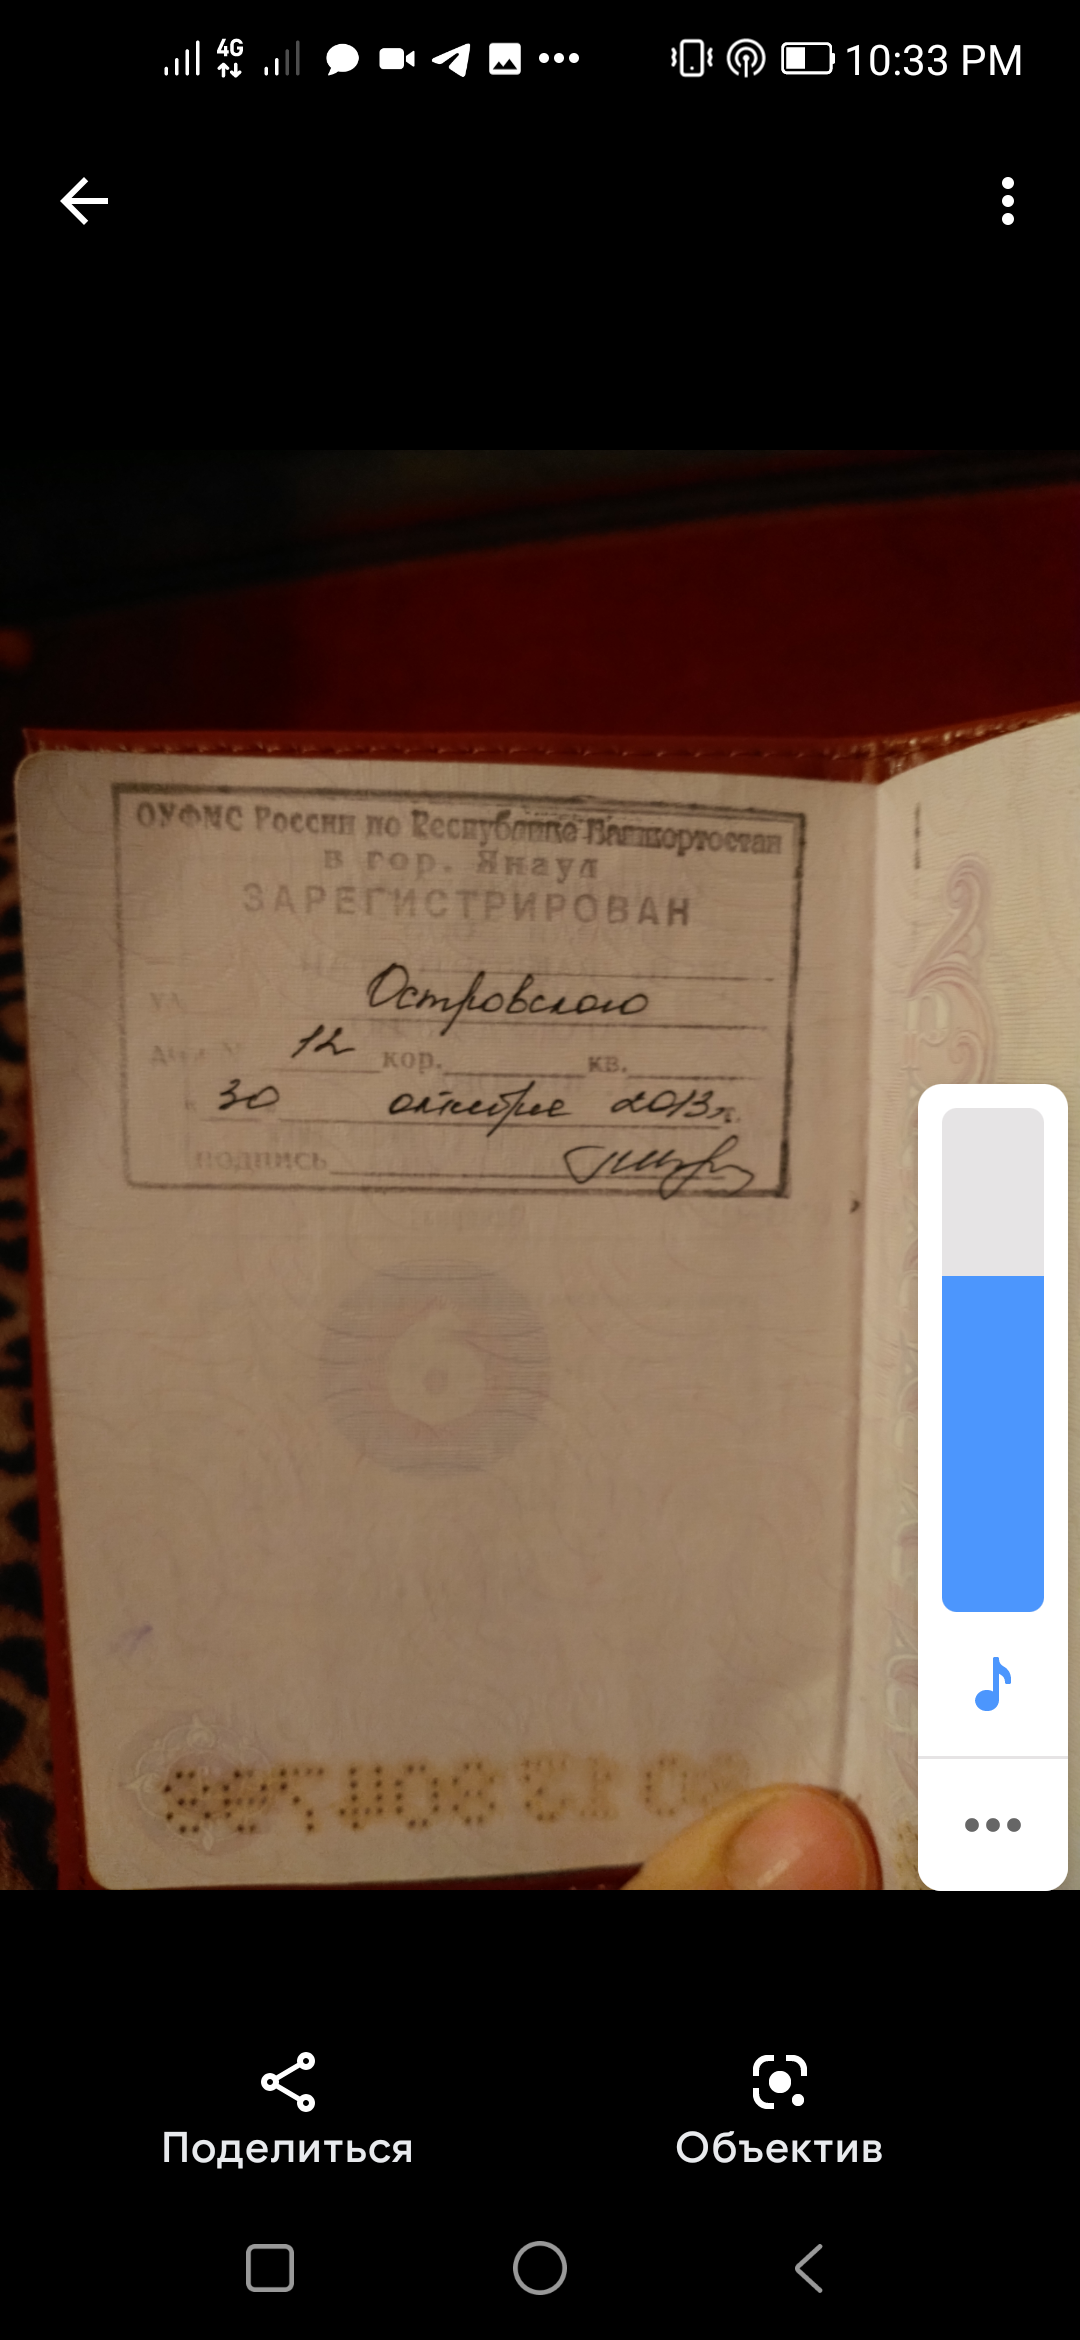 4G 10:33 PM
ОУФМС России по Республике Башкортостан
в гор. Янаул
ЗАРЕГИСТРИРОВАН
ул. Островского
12 кор. кв.
30 октября 2013г.
подпись
Поделиться
Объектив